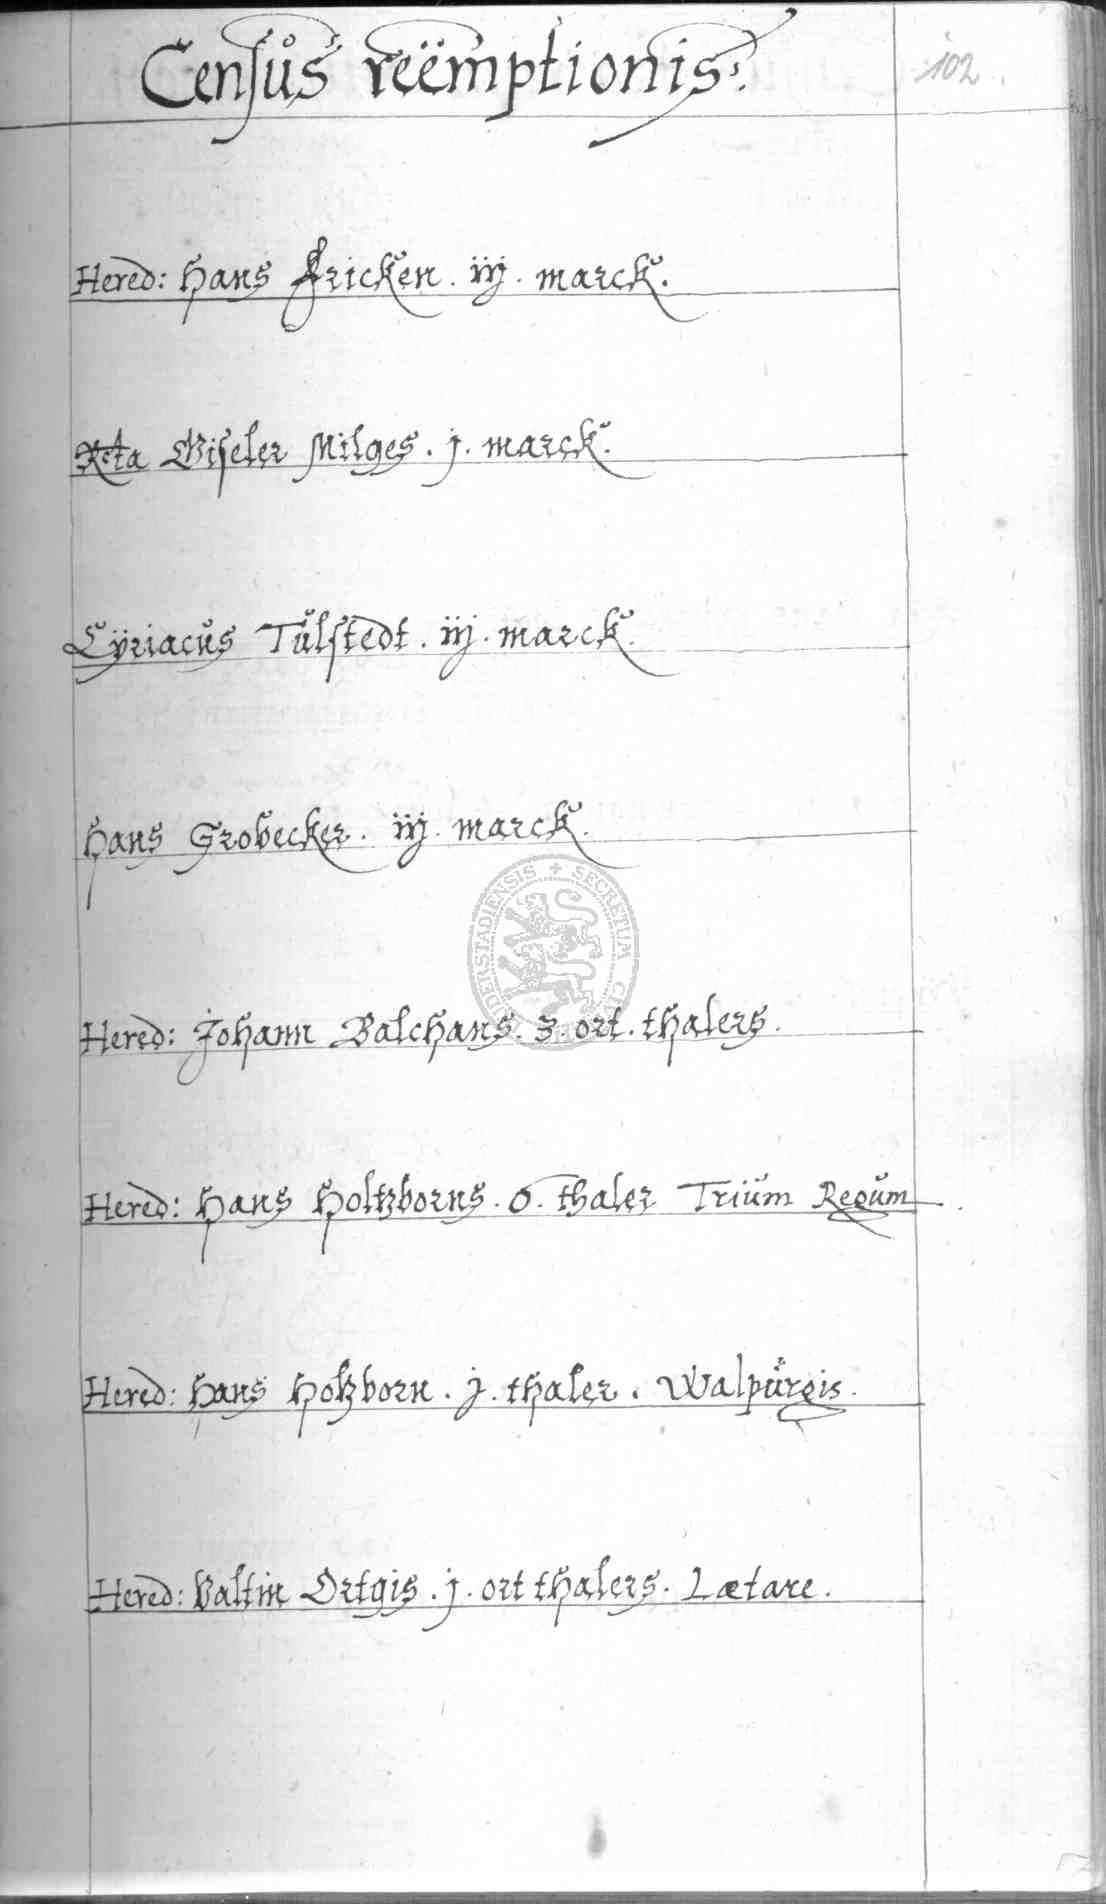 Censůs reëmptionis:
102
Hered: Hans Fricken. iij. marck.
Rcta Giseler Milges. j. marck.
Cÿriacůs Tůlstedt. iij. marck.
Hans Grobecker. iij. marck.
Hered: Johann Balchans. 3. ort. thalers.
Hered: Hans Holtzborns. thaler Triům Regům
Hered: Hans Holtzborn. j. thaler. Walpůrgis.
Hered: Valtin Ortgis. j. ort thalers. Lætare.
DERSTADIENSIS + SECRETUM CI